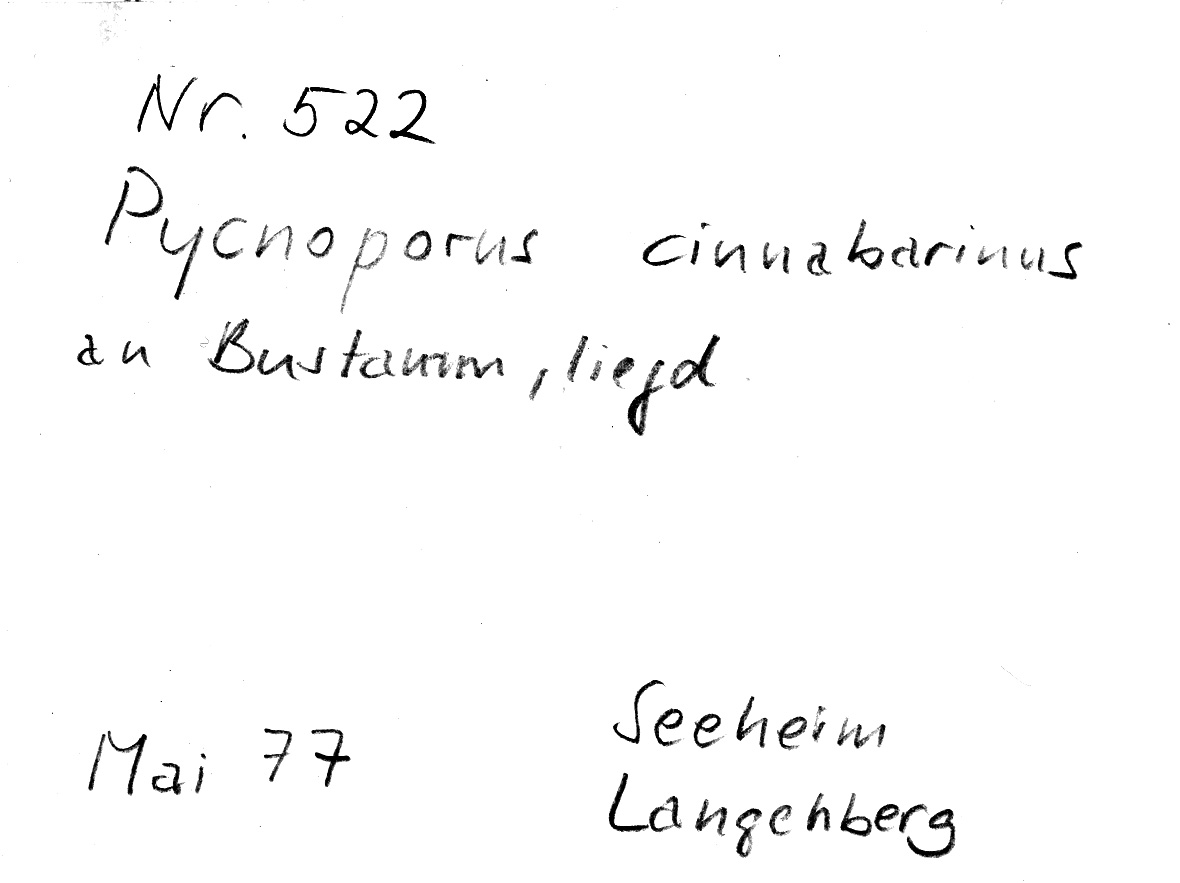 Nr. 522
Pycnoporus cinnabarinus
an Bustamm, liegd
Mai 77
Seeheim
Langenberg